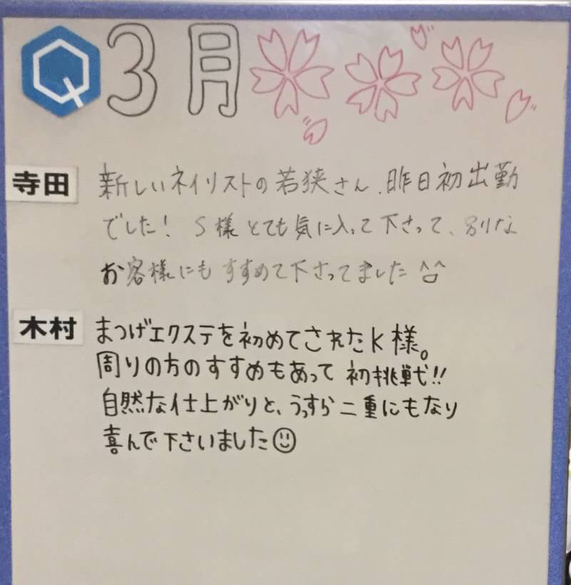 Q 3月
寺田
新しいネイリストの若狭さん、昨日初出勤
でした! S様とても気に入って下さって、別な
お客様にもすすめて下さってました^^
木村
まつげエクステを初めてされたK様。
周りの方のすすめもあって初挑戦!!
自然な仕上がりと、うっすら二重にもなり
喜んで下さいました☺